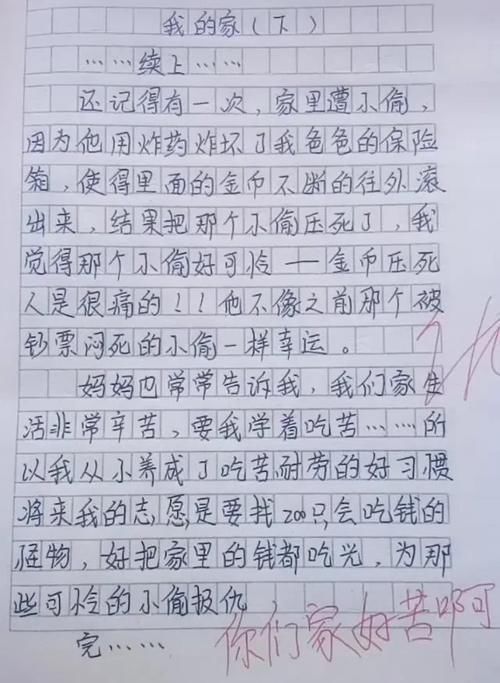 我的家(下)
……续上……
还记得有一次,家里遭小偷,
因为他用炸药炸坏了我爸爸的保险
箱,使得里面的金币不断的往外滚
出来,结果把那个小偷压死了,我
觉得那个小偷好可怜——金币压死
人是很痛的!!他不像之前那个被
钞票闷死的小偷一样幸运。
妈妈也常常告诉我,我们家生
活非常辛苦,要我学着吃苦……所
以我从小养成了吃苦耐劳的好习惯
将来我的志愿是要找200只会吃钱的
怪物,好把家里的钱都吃光,为那
些可怜的小偷报仇
完……
你们家好苦啊